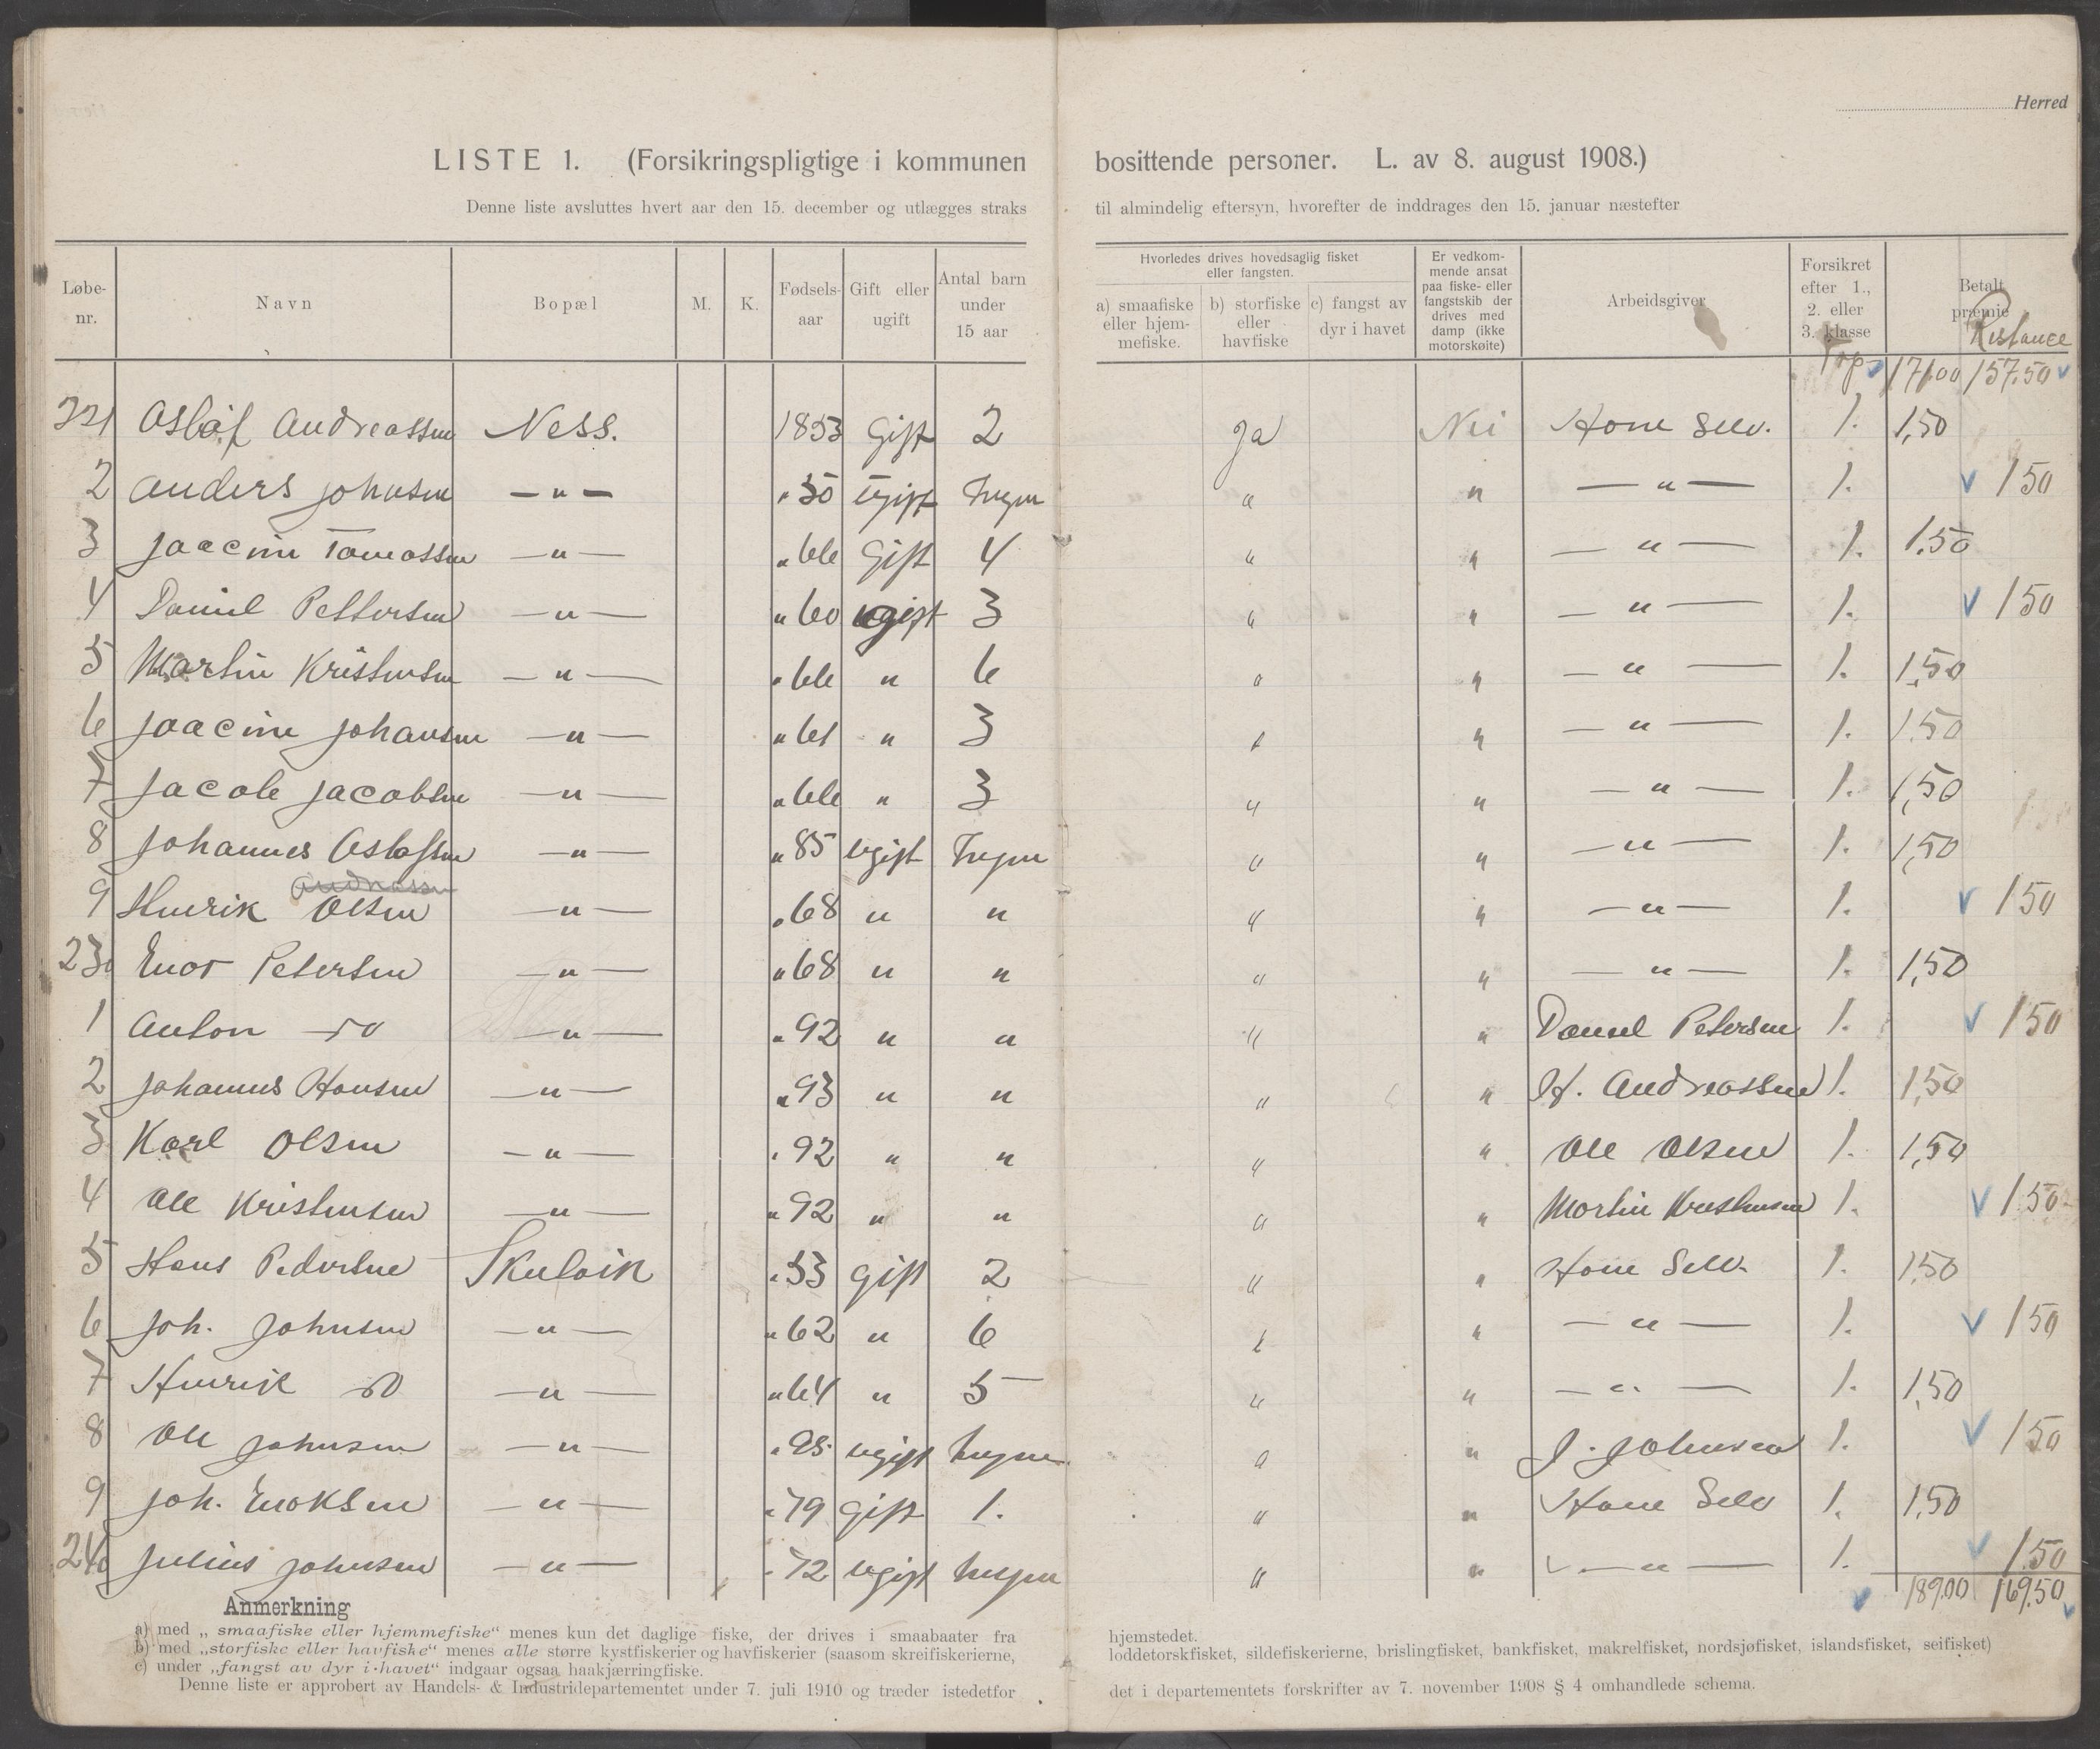 Herred
LISTE 1. (Forsikringspligtige i kommunen bosittende personer. L. av 8. august 1908.)
Denne liste avsluttes hvert aar den 15. december og utlægges straks til almindelig eftersyn, hvorefter de inddrages den 15. januar næstefter
Løbe-nr. Navn Bopæl M. K. Fødsels-aar Gift eller ugift Antal barn under 15 aar Hvorledes drives hovedsaglig fisket eller fangsten. a) smaafiske eller hjem-mefiske. b) storfiske eller havfiske c) fangst av dyr i havet Er vedkom-mende ansat paa fiske- eller fangstskib der drives med damp (ikke motorskøite) Arbeidsgiver Forsikret efter 1., 2. eller 3. klasse Betalt præmie Restance
171.00 157.50
221 Aslaf Andreassen Ness. 1853 Gift 2 Ja Nei Hans Selv. 1. 1,50
2 Anders Johnsen — " — " 50 Ugift Ingen " " — " — 1. 1 50
3 Joacim Tomassen — " — " 66 Gift 4 " " — " — 1. 1.50
4 Daniel Pettersen — " — " 60 ugift 3 " " — " — 1. 1 50
5 Martin Kristensen — " — " 66 " 6 " " — " — 1. 1,50
6 Joacim Johansen — " — " 61 " 3 " " — " — 1. 1.50
7 Jacob Jacobsen — " — " 66 " 3 " " — " — 1. 1,50
8 Johannes Aslafsen — " — " 85 ugift Ingen " " — " — 1. 1,50
9 Henrik Andreassen Olsen — " — " 68 " " " " — " — 1. 1 50
230 Enok Petersen — " — " 68 " " " " — " — 1. 1,50
1 Anton do — " — " 92 " " " " Daniel Petersen 1. 1 50
2 Johannes Hansen — " — " 93 " " " " H. Andreassen 1. 1,50
3 Karl Olsen — " — " 92 " " " " Ole Olsen 1. 1,50
4 Ole Kristensen — " — " 92 " " " " Martin Kristensen 1. 1.50
5 Hans Pedersen Skulvik " 53 Gift 2 " " Hans Selv. 1. 1,50
6 Joh. Johnsen — " — " 62 " 6 " " — " — 1. 1 50
7 Henrik do — " — " 64 " 5 " " — " — 1. 1,50
8 Ole Johnsen — " — " 95 ugift Ingen " " J. Johnsen 1. 1 50
9 Joh. Enoksen — " — " 79 Gift 1. " " Hans Selv 1. 1,50
240 Julius Johnsen — " — " 72 ugift Ingen " " — " — 1. 1.50
189.00 169.50
Anmerkning
a) med „smaafiske eller hjemmefiske“ menes kun det daglige fiske, der drives i smaabaater fra hjemstedet.
b) med „storfiske eller havfiske“ menes alle større kystfiskerier og havfiskerier (saasom skreifiskerierne, loddetorskfisket, sildefiskerierne, brislingfisket, bankfisket, makrelfisket, nordsjøfisket, islandsfisket, seifisket)
c) under „fangst av dyr i havet“ indgaar ogsaa haakjærringfiske.
Denne liste er approbert av Handels- & Industridepartementet under 7. juli 1910 og træder istedetfor det i departementets forskrifter av 7. november 1908 § 4 omhandlede schema.